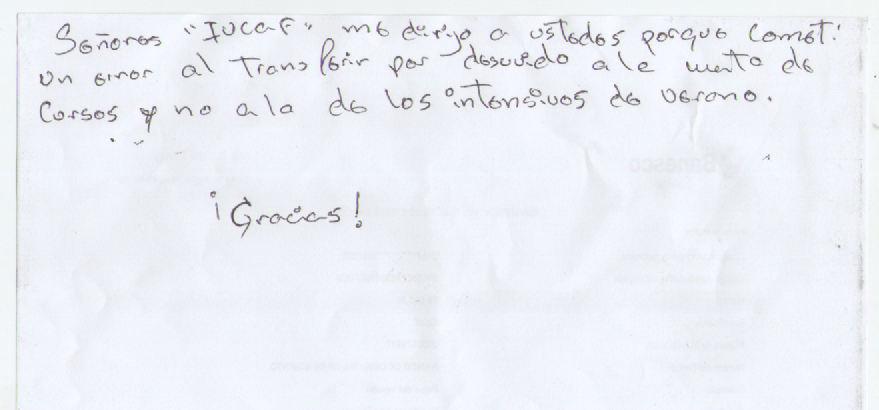 Señores "IUCAF" me dirijo a ustedes porque cometí
un error al Transferir por descuido a la cuenta de
Cursos y no a la de los intensivos de verano.
¡Gracias!
Banesco